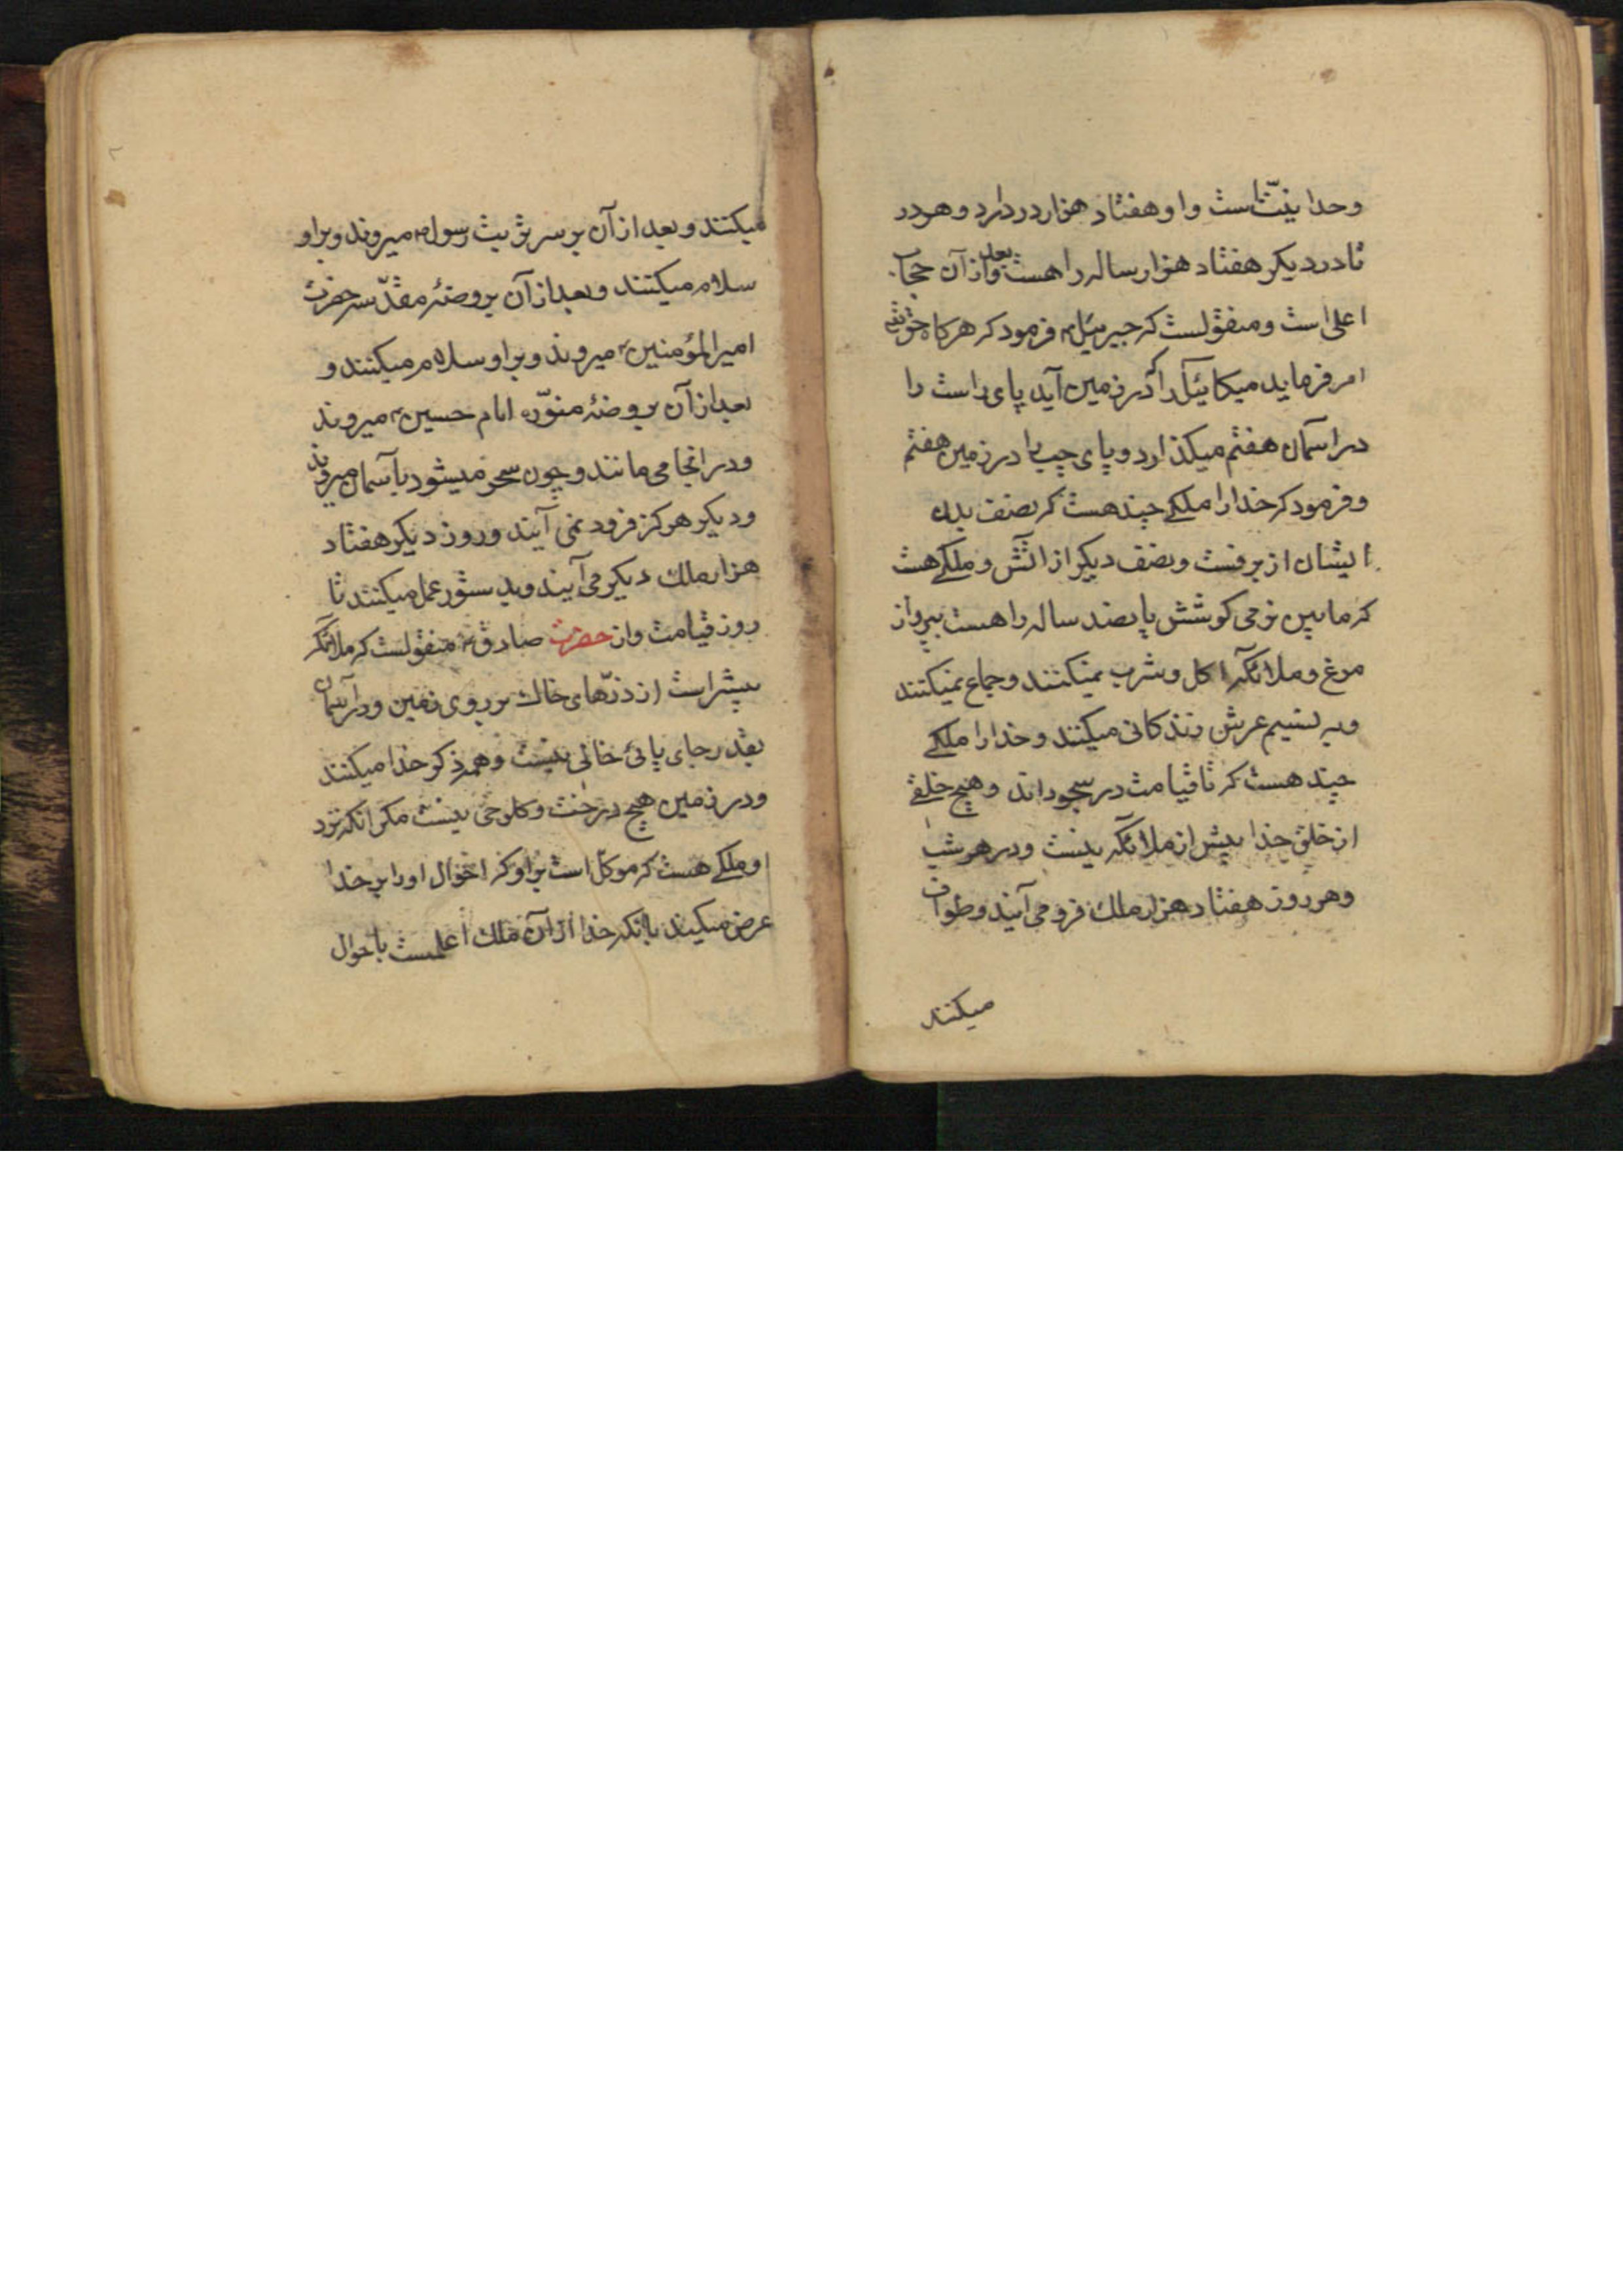 وحدانیّتست واو هفتاد هزار در دارد و هر در
تا در دیکر هفتاد هزار ساله راه هست وبعد از آن حجاب
اعلی است و منقولست که جبرئیل؏ فرمود که هرکاه حق تع
امر فرماید میکائیل را که در زمین آید پای راست را
در آسمان هفتم میکذارد و پای چپ را در زمین هفتم
و فرمود که خدا را ملکی چند هست که نصف بدن
ایشان از برفست و نصف دیکر از آتش و ملکی هست
که مابین نرمی کوشش پانصد ساله راه هست بپرواز
مرغ و ملائکه اکل و شرب نمیکنند و جماع نمیکنند
و به نسیم عرش زندکانی میکنند و خدا را ملکی
چند هست که تا قیامت در سجوداند و هیچ خلقی
از خلق خدا بیش از ملائکه نیست و در هر شب
و هر روز هفتاد هزار ملک فرو می آیند و طواف
میکنند
میکنند و بعد از آن بر سر تربت رسول؏ میروند و بر او
سلام میکنند و بعد از آن بروضهٔ مقدّسه حضرت
امیرالمؤمنین؏ میروند و بر او سلام میکنند و
بعد از آن بروضهٔ منوّره امام حسین؏ میروند
و در انجا می مانند و چون سحر میشود بآسمان میروند
و دیکر هرکز فرود نمی آیند و روز دیکر هفتاد
هزار ملک دیکر می آیند و بدستور عمل میکنند تا
روز قیامت و از حضرت صادق؏ منقولست که ملائکه
بیشتر است از ذرّهای خاک بر روی زمین و در آسمان
بقدر جای پائی خالی نیست و همه ذکر خدا میکنند
و در زمین هیچ درخت و کلوخی نیست مکر انکه نزد
او ملکی هست که موکّل است بر او که احوال او را بر خدا
عرض میکند با انکه خدا از آن ملک اعلمست باحوال